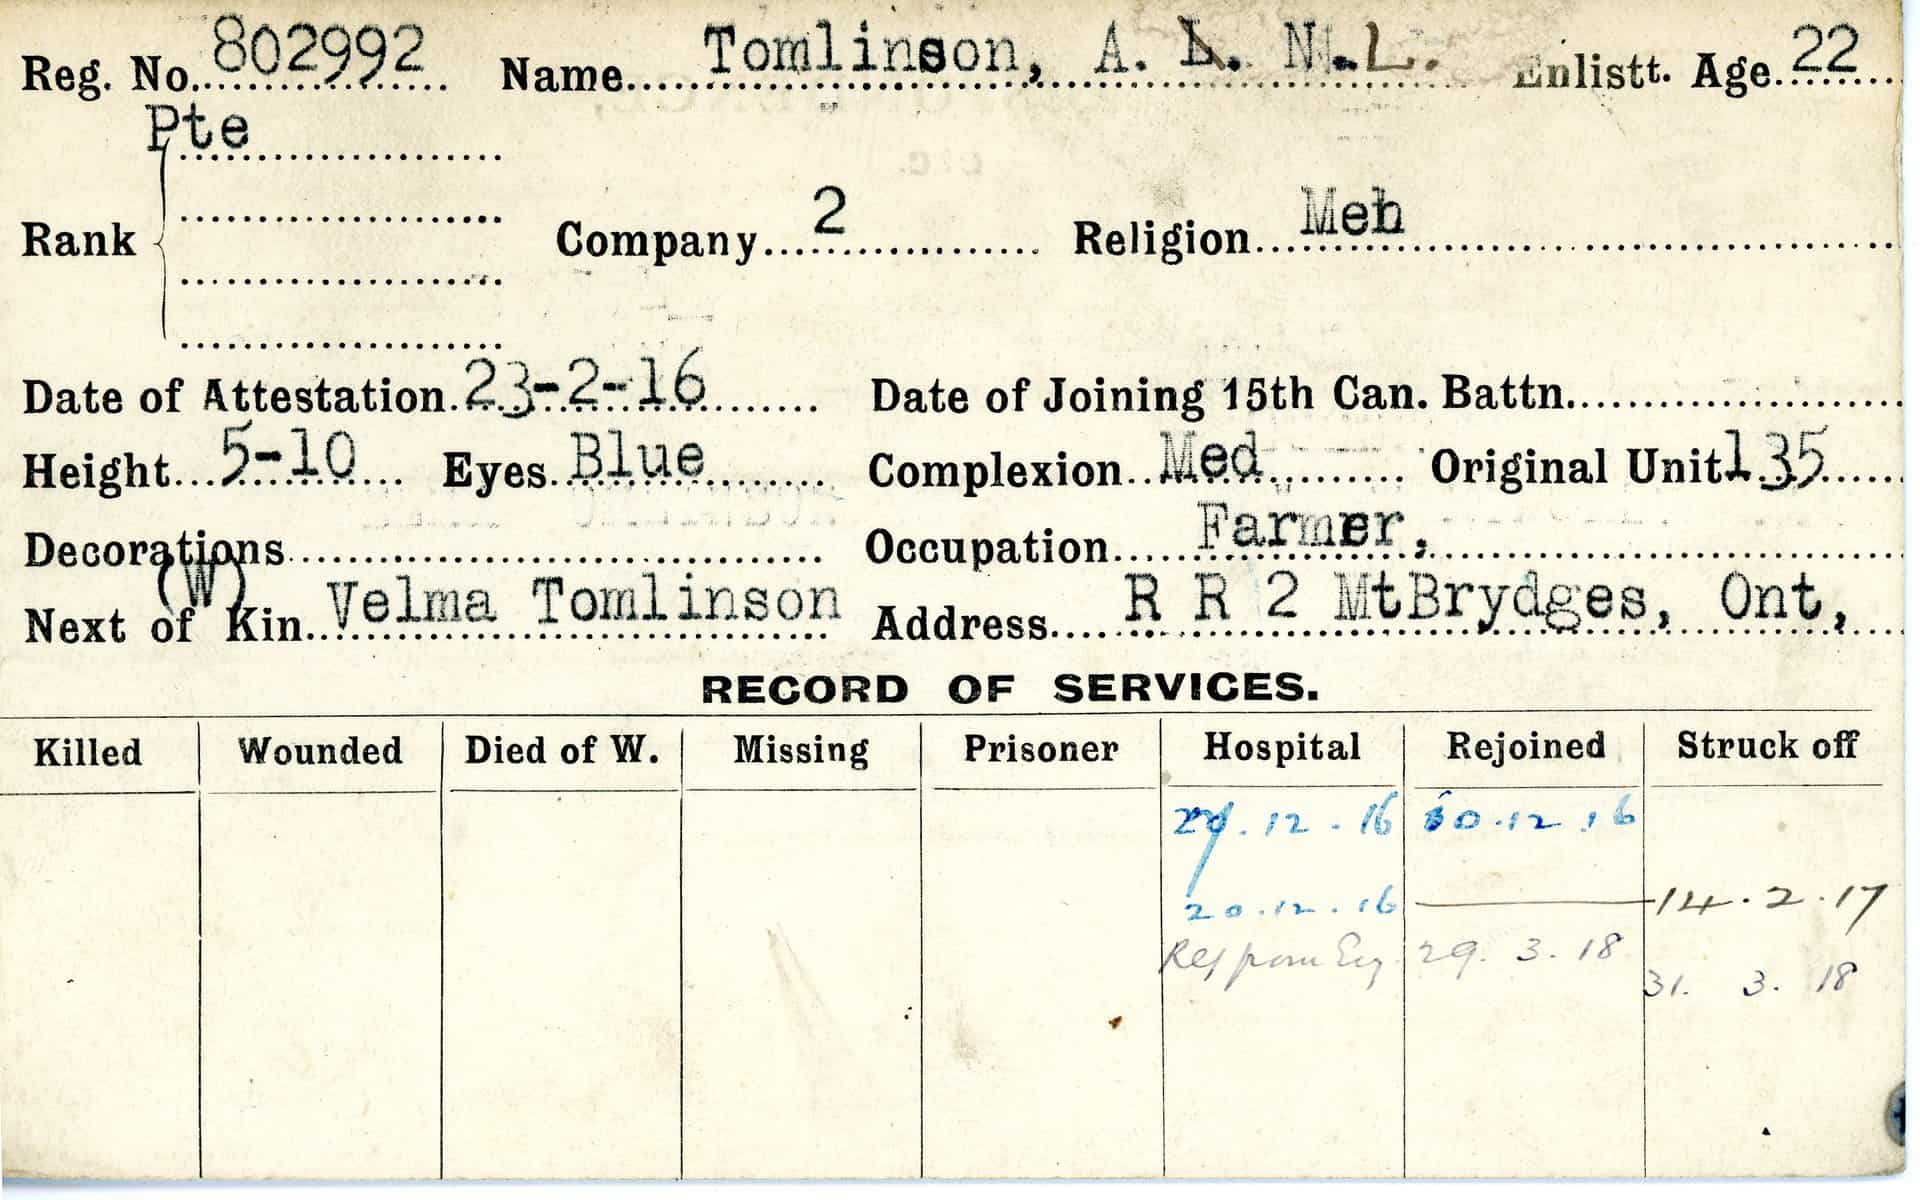 Reg. No. 802992 Name Tomlinson, A. L. N. L. Enlistt. Age 22
Pte
Rank Company 2 Religion Meh
Date of Attestation 23-2-16 Date of Joining 15th Can. Battn.
Height 5-10 Eyes Blue Complexion Med Original Unit 135
Decorations Occupation Farmer,
(W)
Next of Kin Velma Tomlinson Address R R 2 MtBrydges, Ont,
RECORD OF SERVICES.
Killed Wounded Died of W. Missing Prisoner Hospital Rejoined Struck off
.12.16 30.12.16
20.12.16 14.2.17
from Eng 29.3.18
31. 3. 18